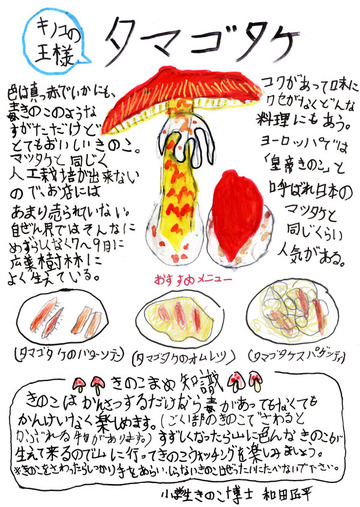 キノコの
王様
タマゴタケ
色は真っ赤でいかにも、
毒きのこのような
すがただけど
とてもおいしいきのこ。
マツタケと同じく
人工栽培が出来ない
ので、お店には
あまり売られていない。
自ぜん界ではそんなに
めずらしくなく7〜9月に
広葉樹林に
よく生えている。
コクがあって口味に
クセがなくどんな
料理にもあう。
ヨーロッパでは
「皇帝きのこ」と
呼ばれ日本の
マツタケと
同じくらい
人気がある。
おすすめメニュー
(タマゴタケのバターソテー)
(タマゴタケのオムレツ)
(タマゴタケスパゲッティ)
きのこまめ知識
きのこはかんさつするだけなら毒があってもなくても
かんけいなく楽しめます。(ごく1部のきのこでさわると
かぶれる物があります。)すずしくなったら山に色んなきのこが
生えて来るので山に行ってきのこウォッチングを楽しみましょう。
※きのこをさわったらしっかり手をあらい、しらないきのこはぜったいにたべないで下さい。
小学生きのこ博士 和田匠平